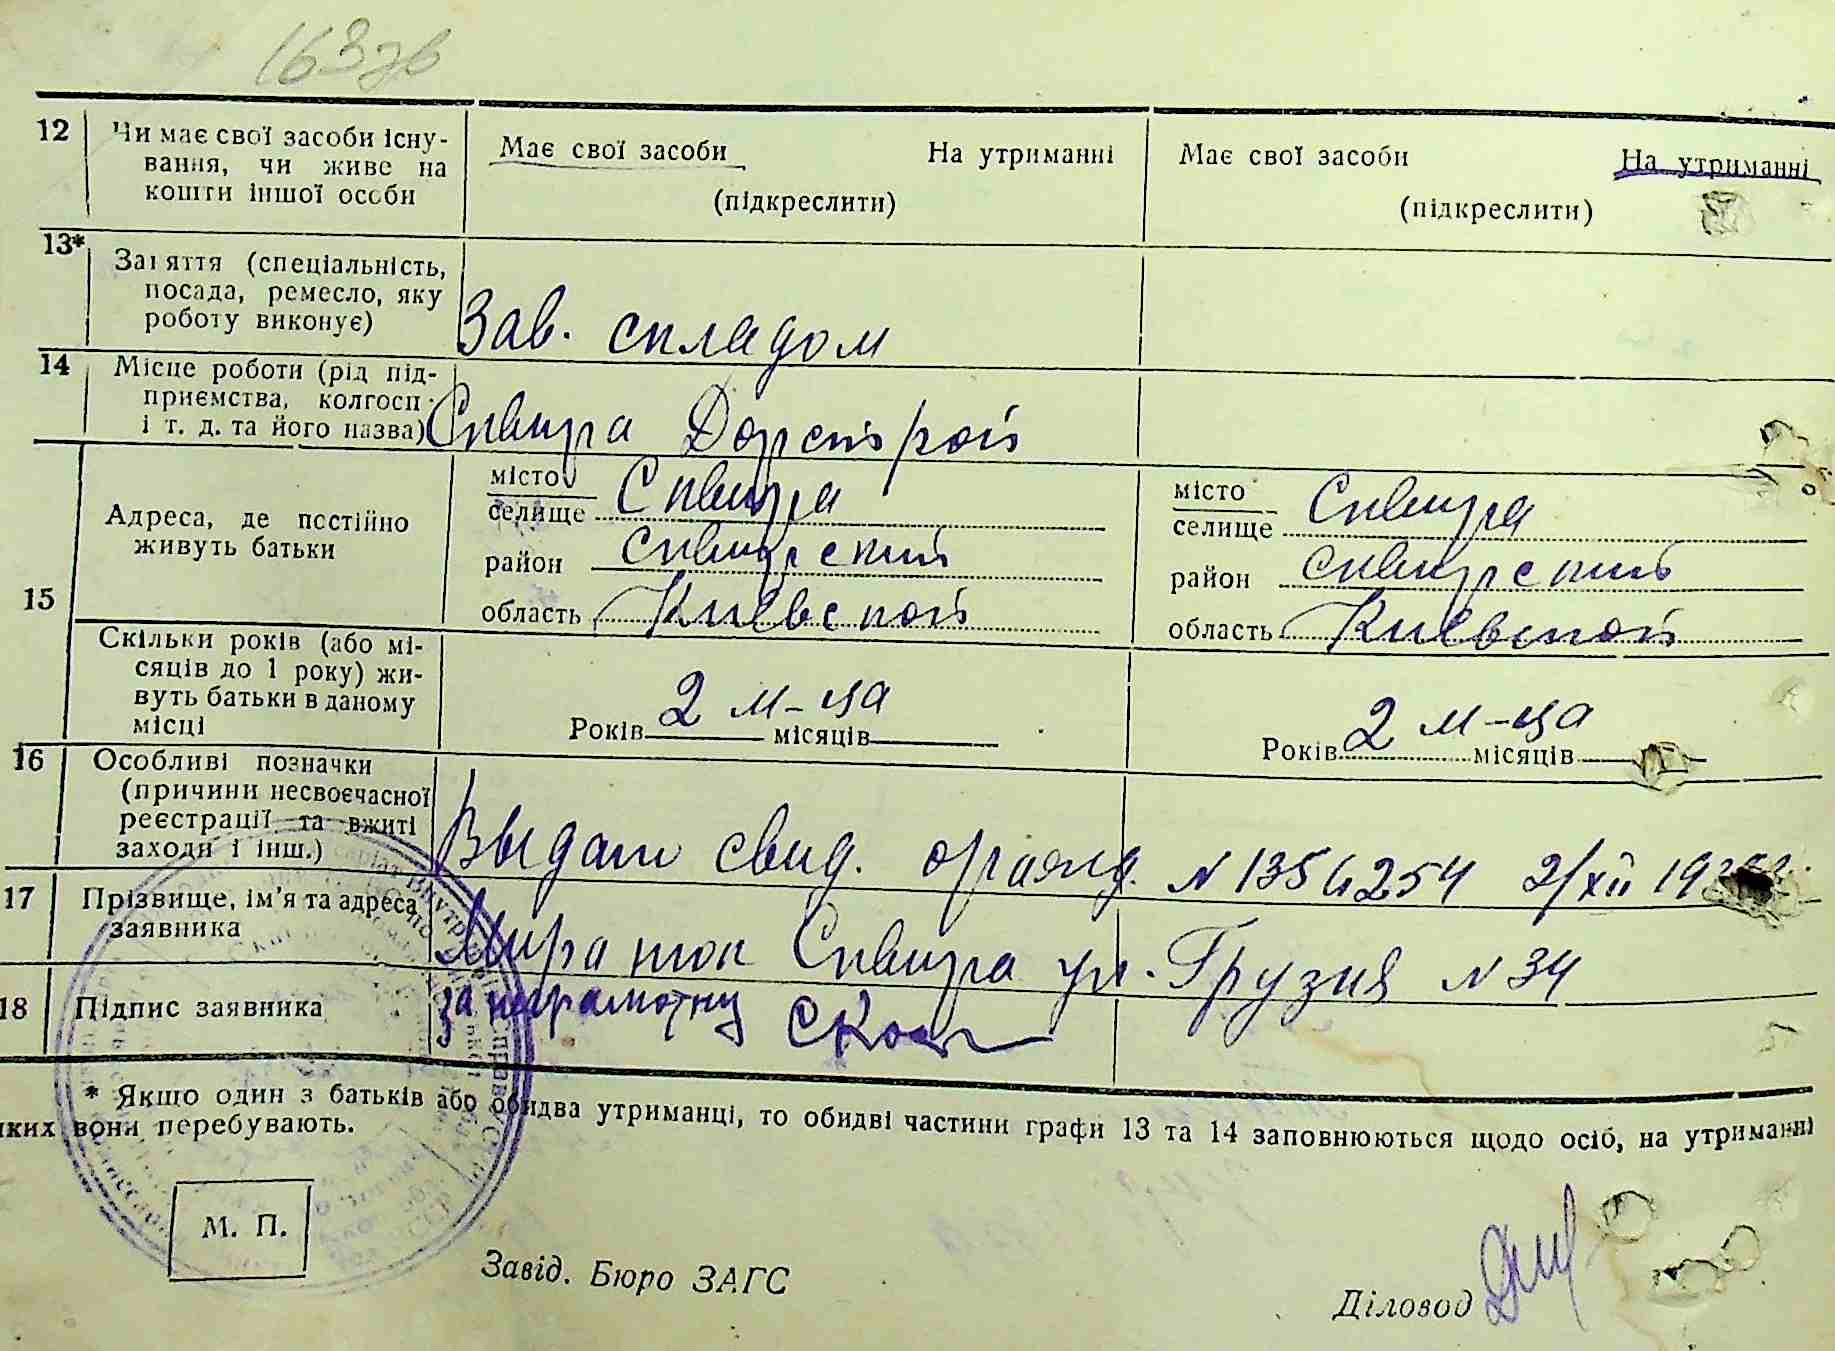 163 зв
12 Чи має свої засоби існу-
вання, чи живе на
кошти іншої особи
Має свої засоби На утриманні
(підкреслити)
Має свої засоби На утриманні
(підкреслити)
13*
Заняття (спеціальність,
посада, ремесло, яку
роботу виконує)
Зав. складом
14 Місце роботи (рід під-
приємства, колгосп
і т. д. та його назва)
Сквира Дорстрой
15
Адреса, де постійно
живуть батьки
місто
селище Сквира
район Сквирский
область Киевской
місто
селище Сквира
район Сквирский
область Киевской
Скільки років (або мі-
сяців до 1 року) жи-
вуть батьки в даному
місці
Років 2 м-ца місяців
Років 2 м-ца місяців
16 Особливі позначки
(причини несвоєчасної
реєстрації та вжиті
заходи і інш.)
Выдан свид. оражд. N 1354254 2/XII 19
17 Прізвище, ім'я та адреса
заявника
Сквира ул. Грузия N 34
18 Підпис заявника
за неграмотну
* Якщо один з батьків або обидва утриманці, то обидві частини графи 13 та 14 заповнюються щодо осіб, на утриманні
яких вони перебувають.
М. П.
Завід. Бюро ЗАГС
Діловод